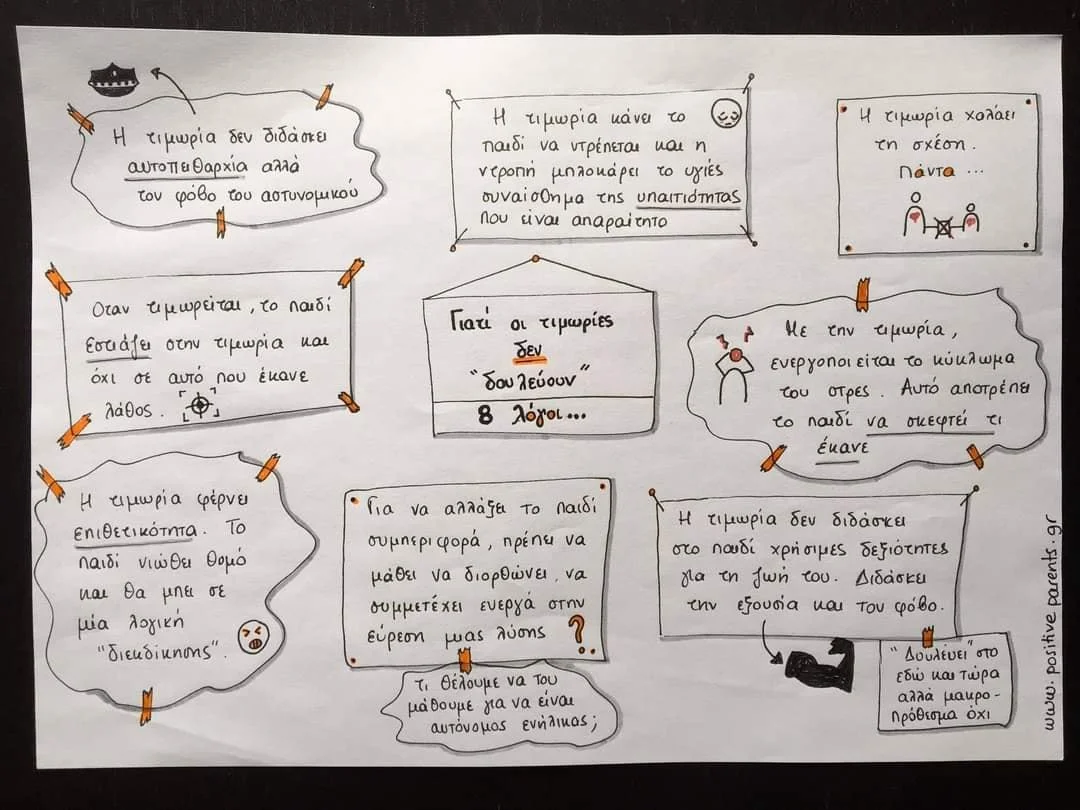 Η τιμωρία δεν διδάσκει
αυτοπειθαρχία αλλά
τον φόβο του αστυνομικού
Η τιμωρία κάνει το
παιδί να ντρέπεται και η
ντροπή μπλοκάρει το υγιές
συναίσθημα της υπαιτιότητας
που είναι απαραίτητο
Η τιμωρία χαλάει
τη σχέση.
Πάντα ...
Όταν τιμωρείται, το παιδί
εστιάζει στην τιμωρία και
όχι σε αυτό που έκανε
λάθος.
Γιατί οι τιμωρίες
δεν
"δουλεύουν"
8 λόγοι...
Με την τιμωρία,
ενεργοποιείται το κύκλωμα
του στρες. Αυτό αποτρέπει
το παιδί να σκεφτεί τι
έκανε
Η τιμωρία φέρνει
επιθετικότητα. Το
παιδί νιώθει θυμό
και θα μπει σε
μία λογική
"διεκδίκησης".
Για να αλλάξει το παιδί
συμπεριφορά, πρέπει να
μάθει να διορθώνει, να
συμμετέχει ενεργά στην
εύρεση μιας λύσης
τι θέλουμε να του
μάθουμε για να είναι
αυτόνομος ενήλικας;
Η τιμωρία δεν διδάσκει
στο παιδί χρήσιμες δεξιότητες
για τη ζωή του. Διδάσκει
την εξουσία και τον φόβο.
"Δουλεύει" στο
εδώ και τώρα
αλλά μακρο-
πρόθεσμα όχι
www.positiveparents.gr